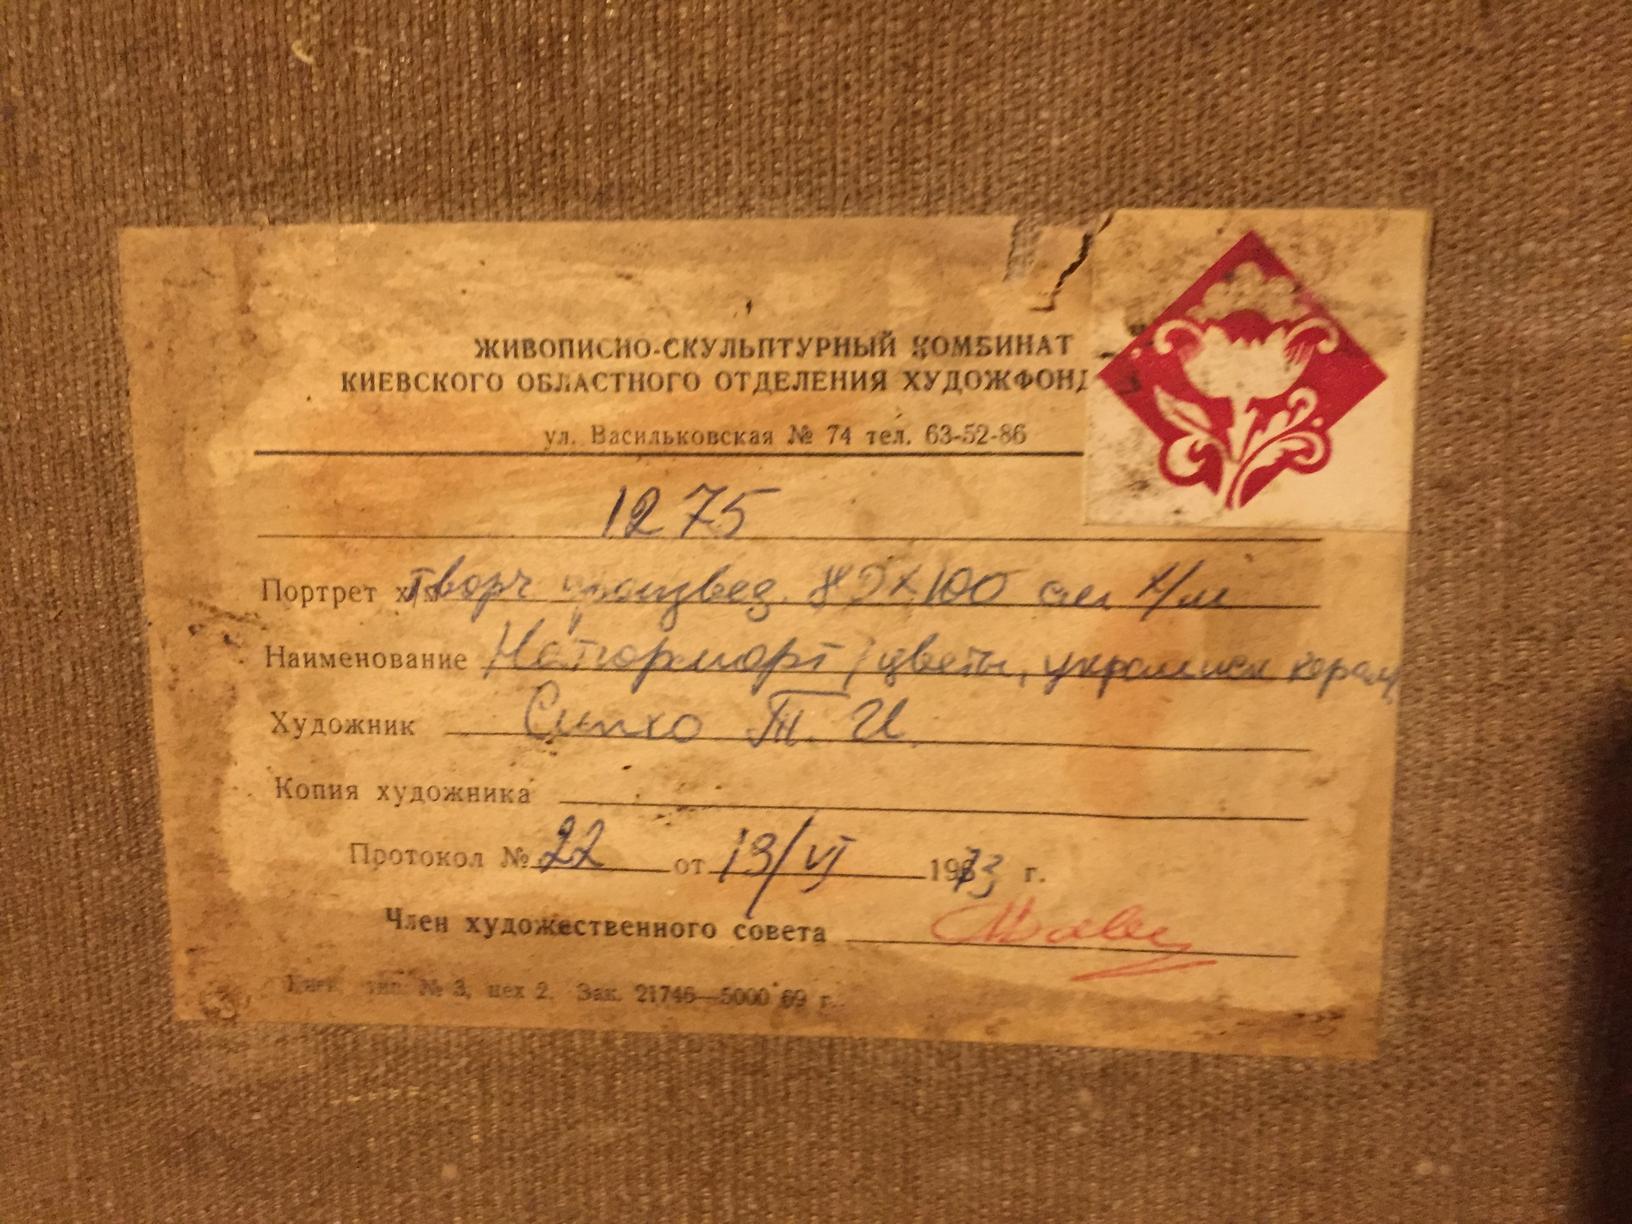 ЖИВОПИСНО-СКУЛЬПТУРНЫЙ КОМБИНАТ
КИЕВСКОГО ОБЛАСТНОГО ОТДЕЛЕНИЯ ХУДОЖФОНД
ул. Васильковская № 74 тел. 63-52-86
1275
Портрет х/м творч произвед. 80х100 см х/м
Наименование Натюрморт /цветы, украинск керам
Художник Т. И.
Копия художника
Протокол № 22 от 19/VI 1973 г.
Член художественного совета
тип. № 3, цех 2. Зак. 21746—5000 69 г.